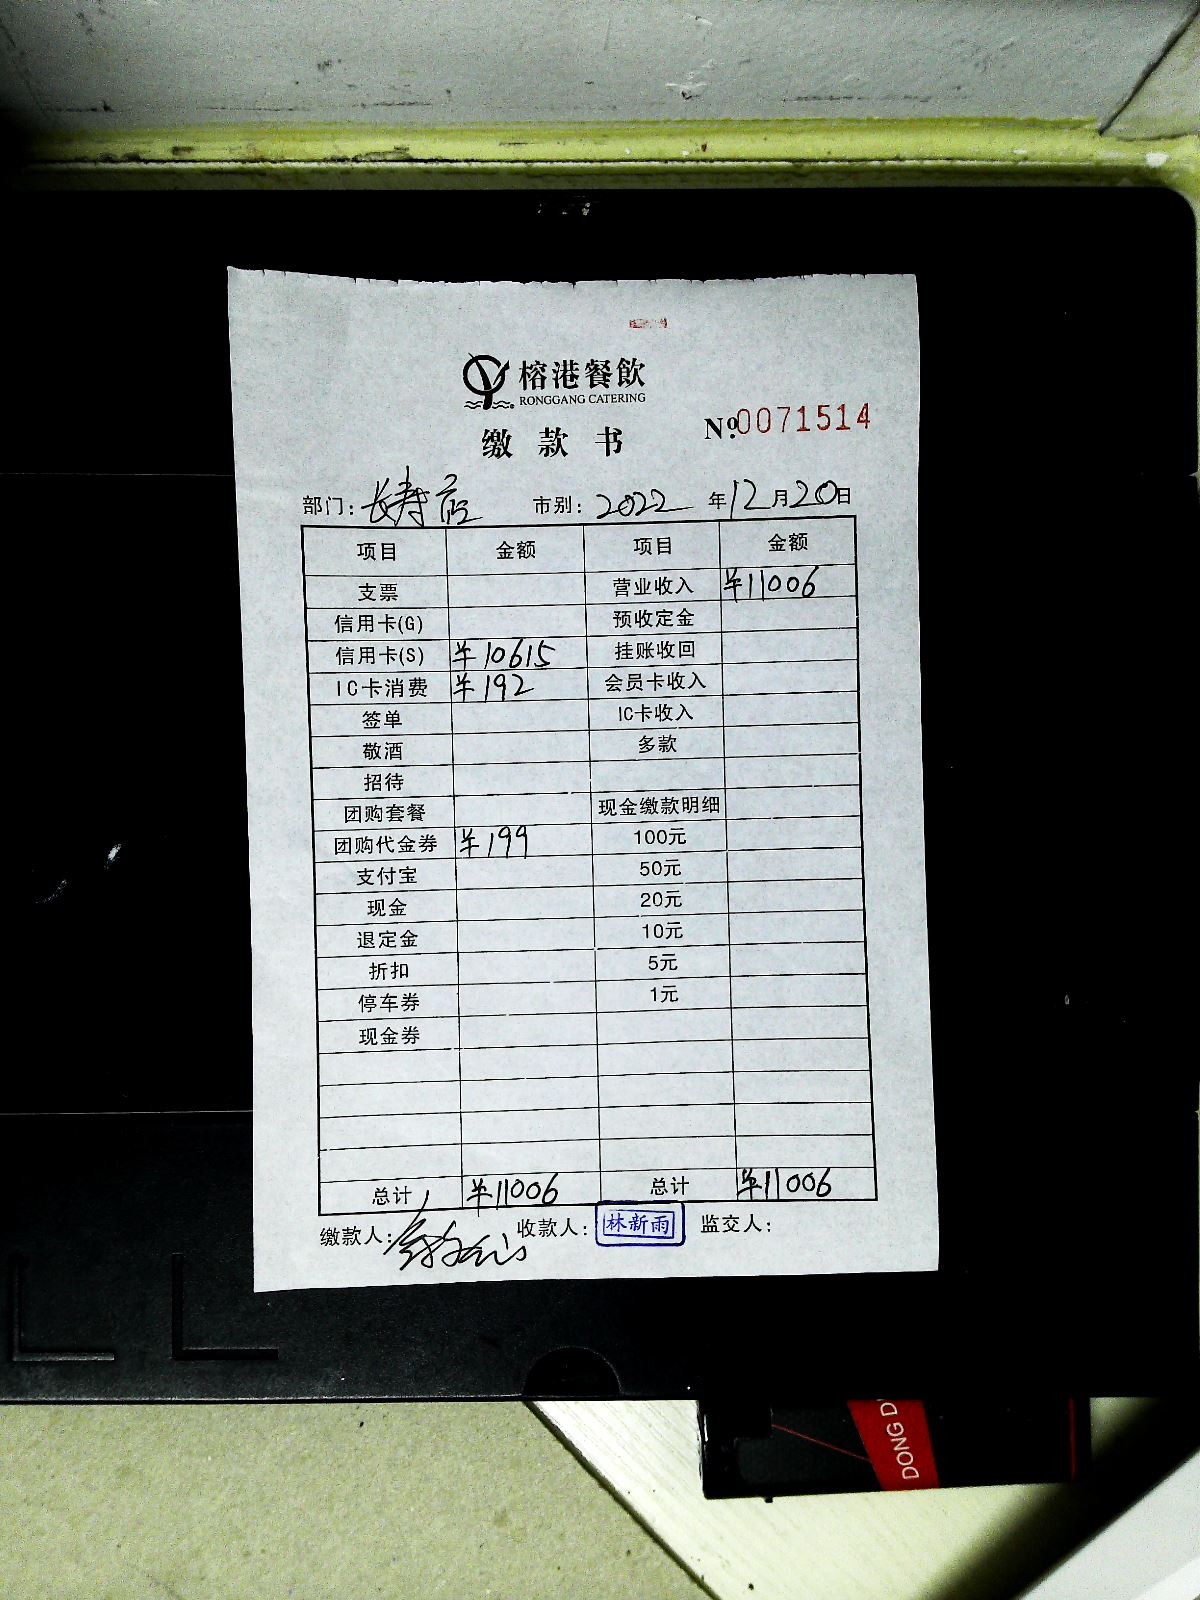 榕港餐飲
RONGGANG CATERING
缴款书 №0071514
部门: 长寿店 市别: 2022 年12月20日
项目 金额 项目 金额
支票 营业收入 ¥11006
信用卡(G) 预收定金
信用卡(S) ¥10615 挂账收回
IC卡消费 ¥192 会员卡收入
签单 IC卡收入
敬酒 多款
招待
团购套餐 现金缴款明细
团购代金券 ¥199 100元
支付宝 50元
现金 20元
退定金 10元
折扣 5元
停车券 1元
现金券
总计 ¥11006 总计 ¥11006
缴款人: 收款人: 林新雨 监交人:
DONG D